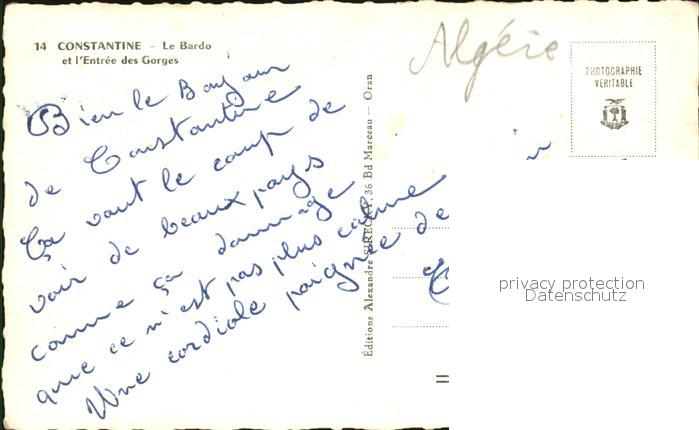 14 CONSTANTINE - Le Bardo
et l'Entrée des Gorges
Algérie
PHOTOGRAPHIE
VÉRITABLE
Bien le Bonjour
de Constantine
Ça vaut le coup de
voir de beaux pays
comme ça dommage
que ce n'est pas plus calme
Une cordiale poignée de
Éditions Alexandre SIRECKY, 36 Bd Marceau - Oran
privacy protection
Datenschutz